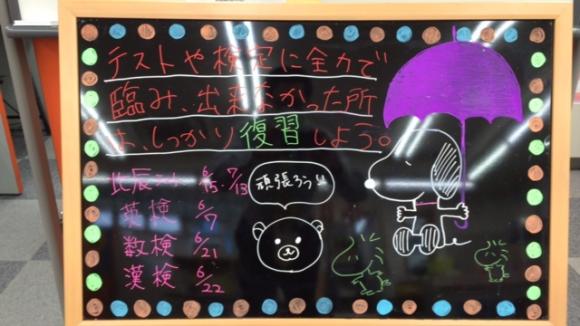 テストや検定に全力で
臨み、出来なかった所
は、しっかり復習しよう。
北辰テスト 6/15・7/13
英検 6/7
数検 6/21
漢検 6/22
頑張ろう